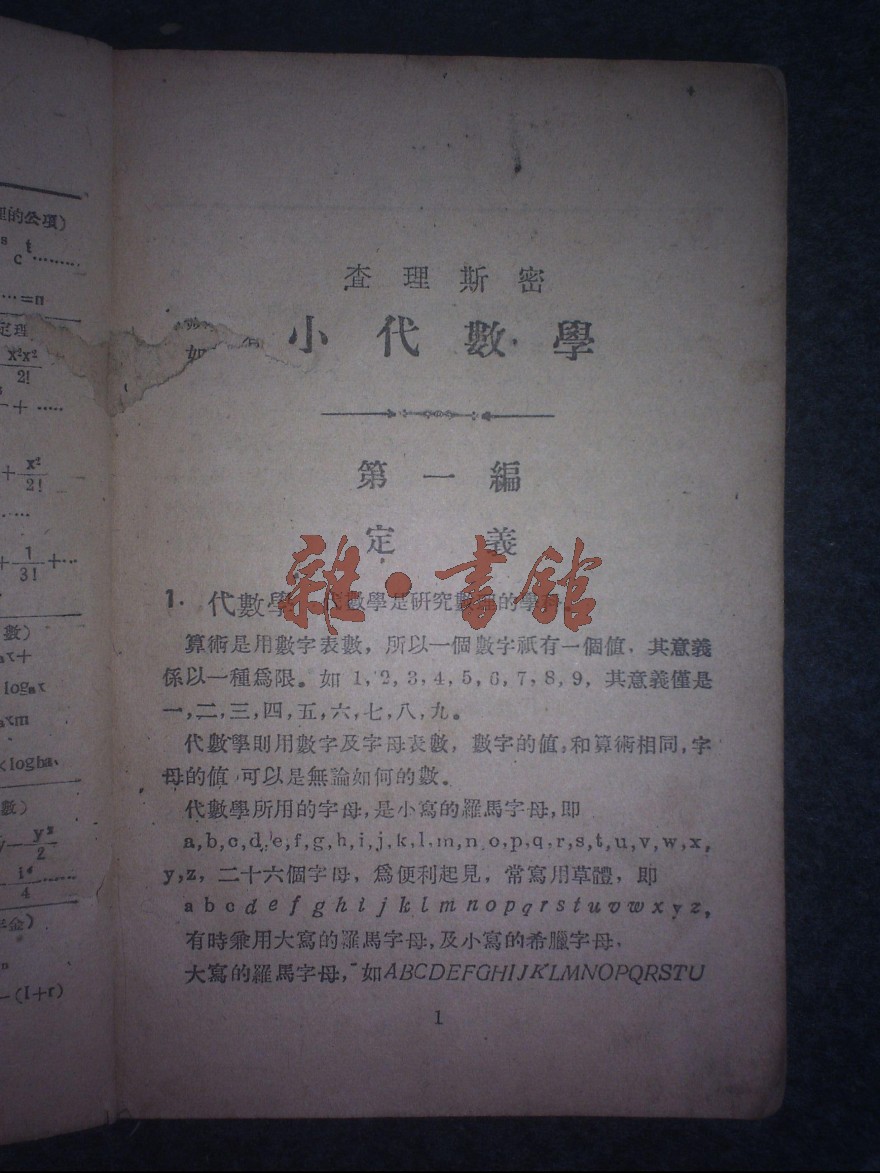 理的公項)
c t………
…=n
定理
x²x²
2!
+ ……
+ x²
2!
……
+ 1 +…
3!
數)
logₐx
ₐxm
×logba
數)
y²
2
4
年金)
(1+r)
查理斯密
小代數學
如
第一編
定義
1. 代數學 代數學是研究數理的學科
雜·書館
算術是用數字表數，所以一個數字祇有一個值，其意義
係以一種爲限。如 1, 2, 3, 4, 5, 6, 7, 8, 9, 其意義僅是
一,二,三,四,五,六,七,八,九。
代數學則用數字及字母表數，數字的值,和算術相同,字
母的值,可以是無論如何的數。
代數學所用的字母,是小寫的羅馬字母,即
a,b,c,d,e,f,g,h,i,j,k,l,m,n,o,p,q,r,s,t,u,v,w,x,
y,z, 二十六個字母，爲便利起見，常寫用草體，即
a b c d e f g h i j k l m n o p q r s t u v w x y z,
有時兼用大寫的羅馬字母,及小寫的希臘字母,
大寫的羅馬字母,如ABCDEFGHIJKLMNOPQRSTU
1